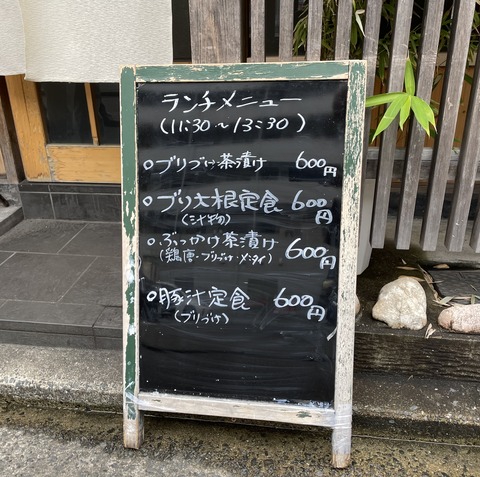 ランチメニュー
(11:30～13:30)
ブリづけ茶漬け 600円
ブリ大根定食 600円
ぶっかけ茶漬け 600円
(鶏唐・ブリづけ・メンタイ)
豚汁定食 600円
(ブリづけ)